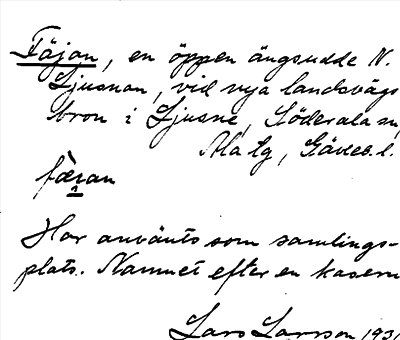 Fäjan, en öppen ängsudde N.
Ljusnan, vid nya landsvägs
bron i Ljusne, Söderala sn,
Ala tg, Gävleb. l.
Har använts som samlings-
plats. Namnet efter en kasern
Lars Larsson 1931